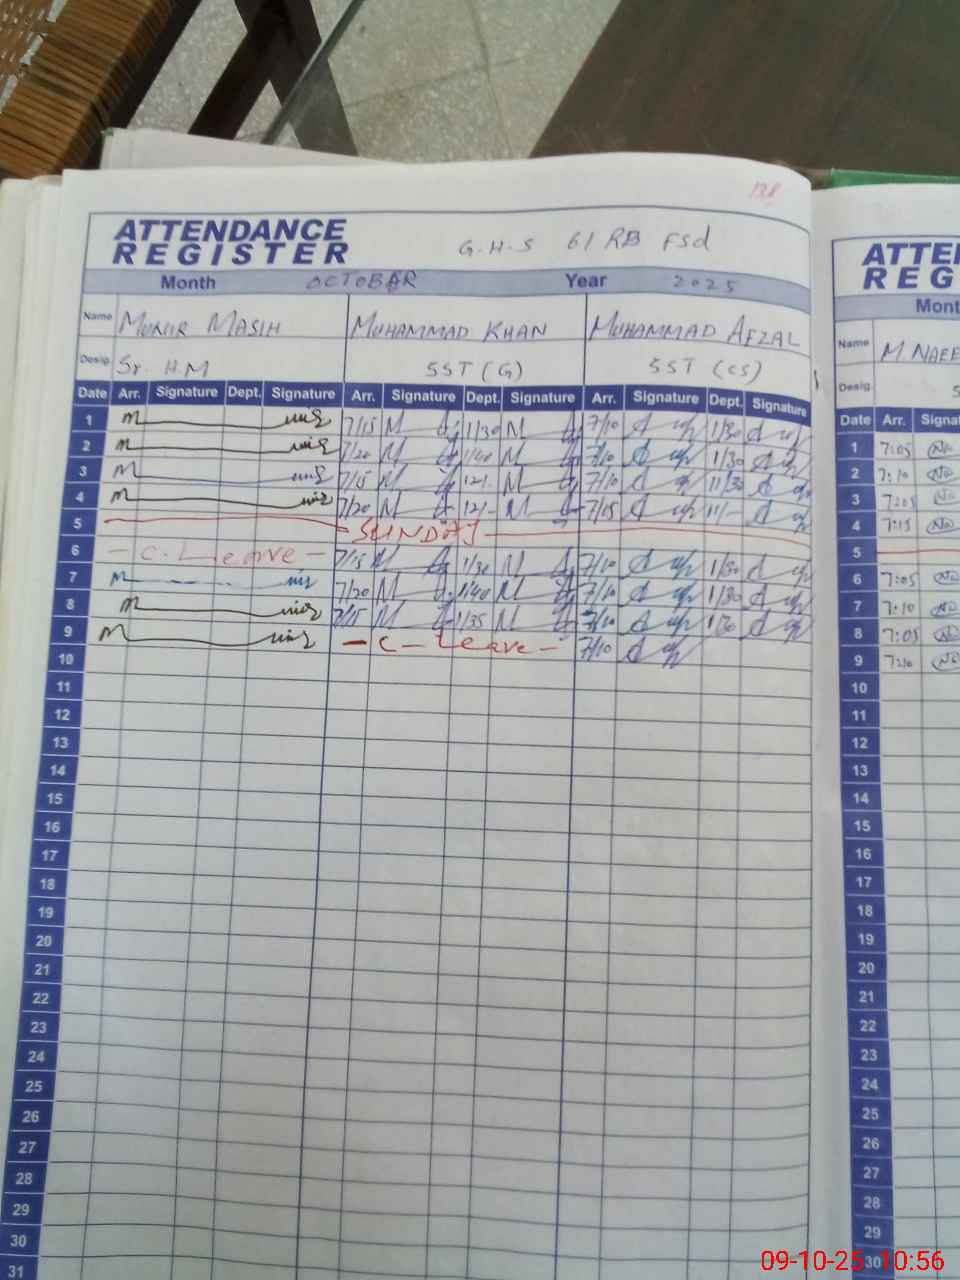 138
ATTENDANCE
REGISTER
G.H.S 61 RB FSd
Month OCTOBAR Year 2025
Name MUNIR MASIH MUHAMMAD KHAN MUHAMMAD AFZAL
Desig. Sr. H.M SST (G) SST (CS)
Date Arr. Signature Dept. Signature Arr. Signature Dept. Signature Arr. Signature Dept. Signature
1 7/15 1/30 7/10 1/30
2 7/20 1/40 7/10 1/30
3 7/15 12/- 7/10 11/30
4 7/20 12/- 7/15 11/-
5 SUNDAY
6 - C. Leave - 7/15 1/30 7/10 1/30
7 7/20 1/40 7/10 1/30
8 7/15 1/35 7/10 1/30
9 - C - Leave - 7/10
10
11
12
13
14
15
16
17
18
19
20
21
22
23
24
25
26
27
28
29
30
31
ATTE
REG
Mont
Name M NAEE
Desig. S
Date Arr. Signat
1 7:05
2 7:10
3 7:05
4 7:15
5
6 7:05
7 7:10
8 7:05
9 7:10
10
11
12
13
14
15
16
17
18
19
20
21
22
23
24
25
26
27
28
29
30
09-10-25 10:56